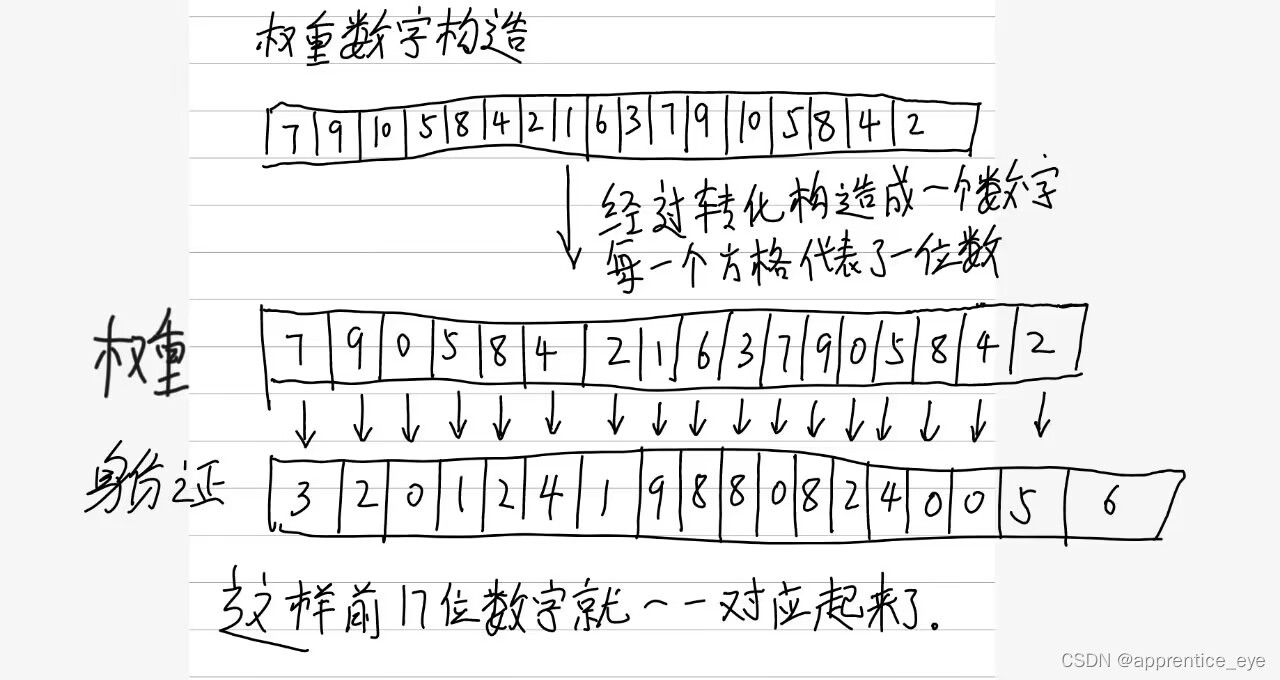 权重数字构造
7 9 10 5 8 4 2 1 6 3 7 9 10 5 8 4 2
经过转化构造成一个数字
每一个方格代表了一位数
权重 7 9 0 5 8 4 2 1 6 3 7 9 0 5 8 4 2
身份证 3 2 0 1 2 4 1 9 8 8 0 8 2 4 0 0 5 6
这样前17位数字就一一对应起来了.
CSDN @apprentice_eye